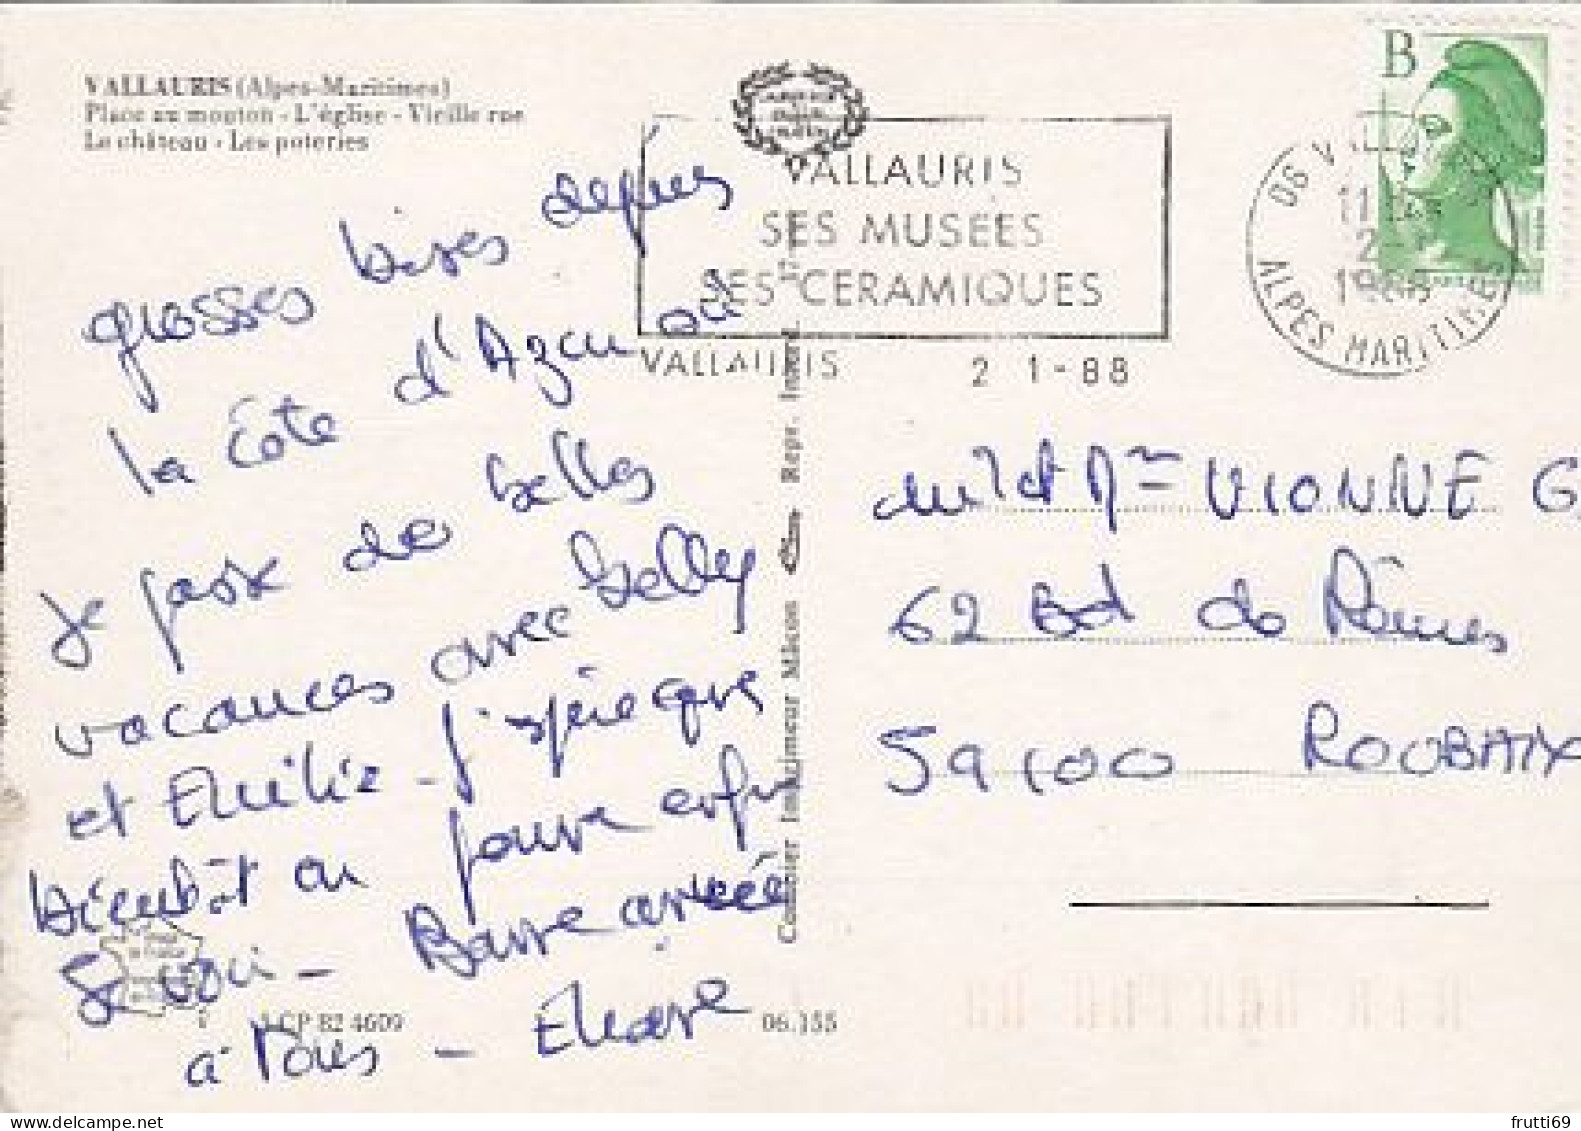 VALLAURIS (Alpes-Maritimes)
Place au mouton - L'église - Vieille rue
Le château - Les poteries
grosses bises depuis
la Côte d'Azur où
je passe de belles
vacances avec Gelly
et Emilie - j'espère que
bientôt on pourra enfin
se voir - Bonne année
à tous - Eliane
LCP 82 4609
06.155
Combier Imprimeur Mâcon
Repr. Interd.
VALLAURIS
SES MUSÉES
SES CERAMIQUES
VALLAURIS 2 1-88
B
06 VALLAURIS
11H
2-1
1988
ALPES MARITIMES
et Mme VIONNE G
62 Bd de
59100 ROUBAIX
frutti69